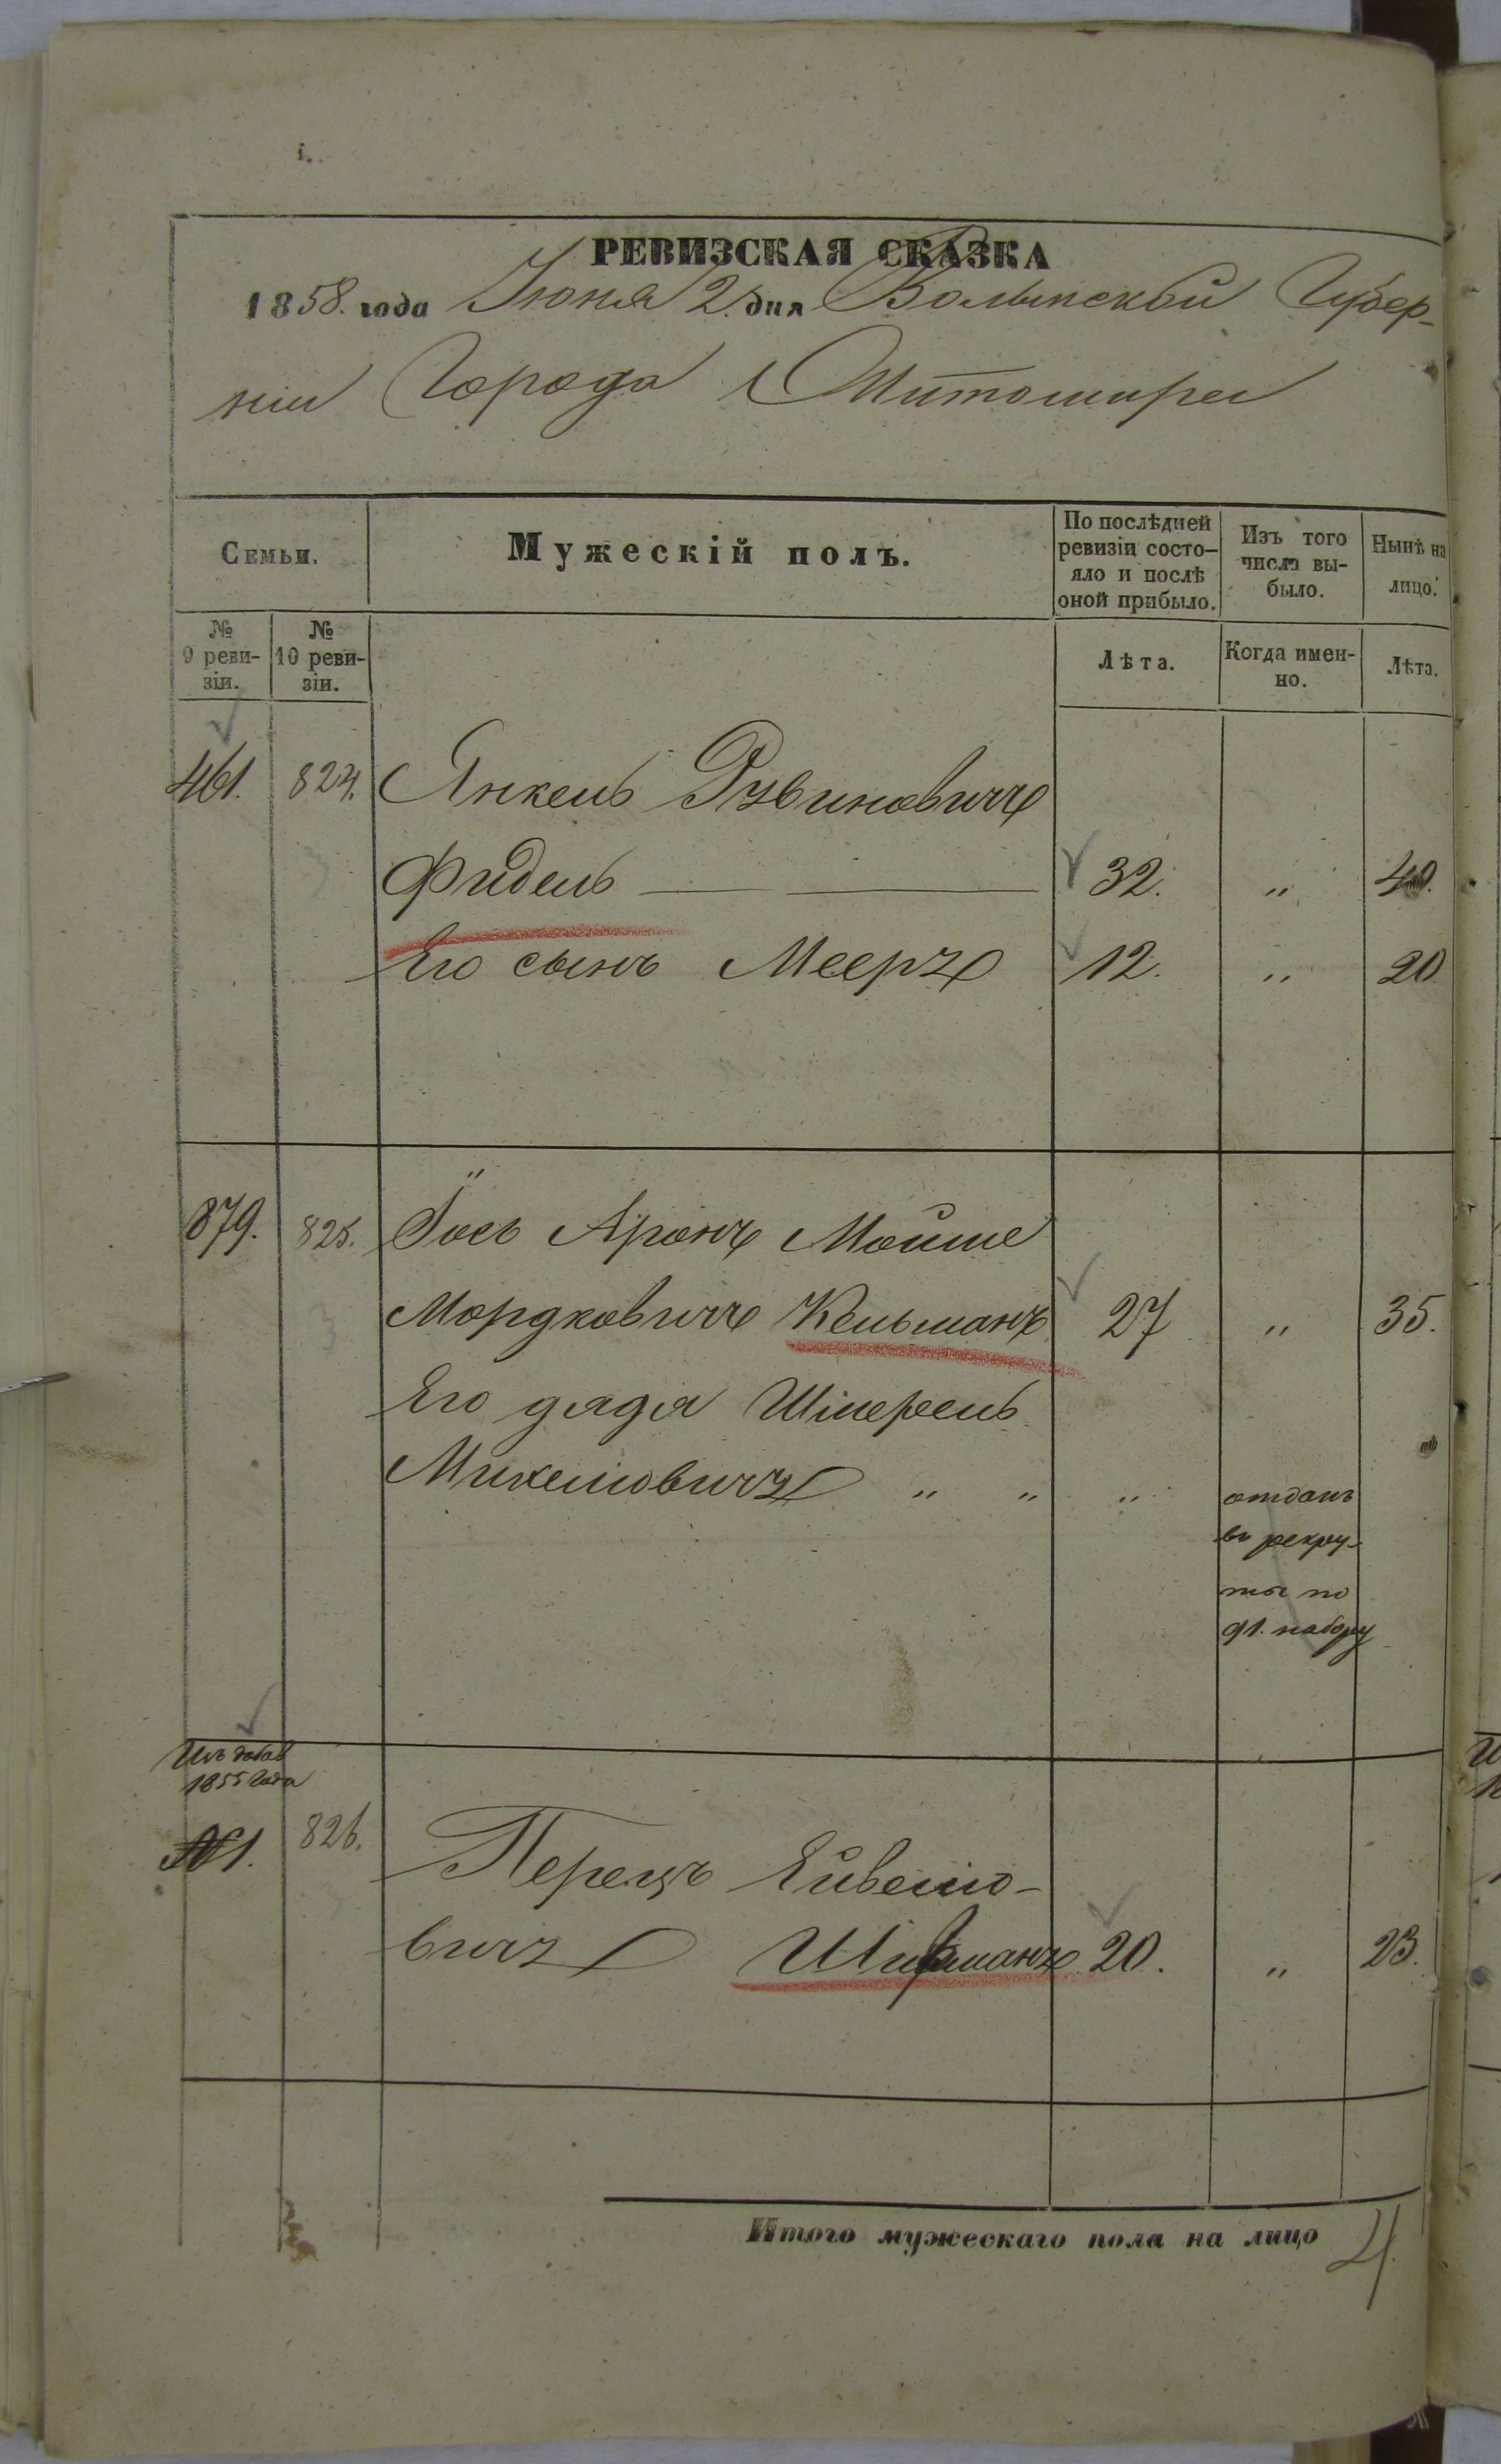 РЕВИЗСКАЯ СКАЗКА
1858. года Июня 2. дня Волынской Губер-
ніи Города Житомира
Семьи.
Мужескій полъ.
По послѣдней ревизіи состо-
яло и послѣ оной прибыло.
Изъ того числа вы-
было.
Нынѣ на лицо.
№ 9 реви-
зіи.
№ 10 реви-
зіи.
Лѣта.
Когда имен-
но.
Лѣта.
461. 824. Янкель Рувиновичъ
Фидель 32. " 40.
Его сынъ Мееръ 12. " 20
879. 825. Іось Аронъ Мойше
Мордковичъ Кельманъ 27 " 35.
Его дядя
Михелiовичъ " " " отданъ
въ рекру-
ты по
91. набору
Изъ добав
1855 года
1. 826. Перецъ
вичъ Шифманъ 20. " 23.
Итого мужескаго пола на лицо 4.